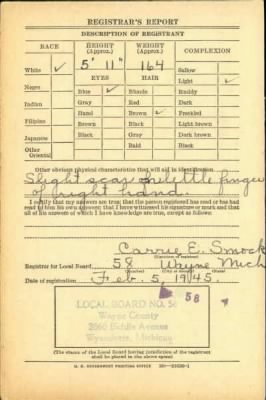 REGISTRAR'S REPORT
DESCRIPTION OF REGISTRANT
RACE HEIGHT (Approx.) WEIGHT (Approx.) COMPLEXION
5' 11" 164 Sallow
White ✓ EYES HAIR Light ✓
Negro Blue ✓ Blonde Ruddy
Indian Gray Red Dark
Filipino Hazel Brown ✓ Freckled
Japanese Brown Black Light brown
Other Oriental Black Gray Dark brown
Bald Black
Other obvious physical characteristics that will aid in identification
Slight scar on little finger
of right hand.
I certify that my answers are true; that the person registered has read or has had
read to him his own answers; that I have witnessed his signature or mark and that
all of his answers of which I have knowledge are true, except as follows:
Carrie E. Smock
(Signature of registrar)
Registrar for Local Board 58 Wayne Mich
(Number) (City or county) (State)
Date of registration Feb. 5, 1945.
LOCAL BOARD NO. 58
58
Wayne County
Biddle Avenue
Wyandotte, Michigan
(The stamp of the Local Board having jurisdiction of the registrant
shall be placed in the above space)
U. S. GOVERNMENT PRINTING OFFICE